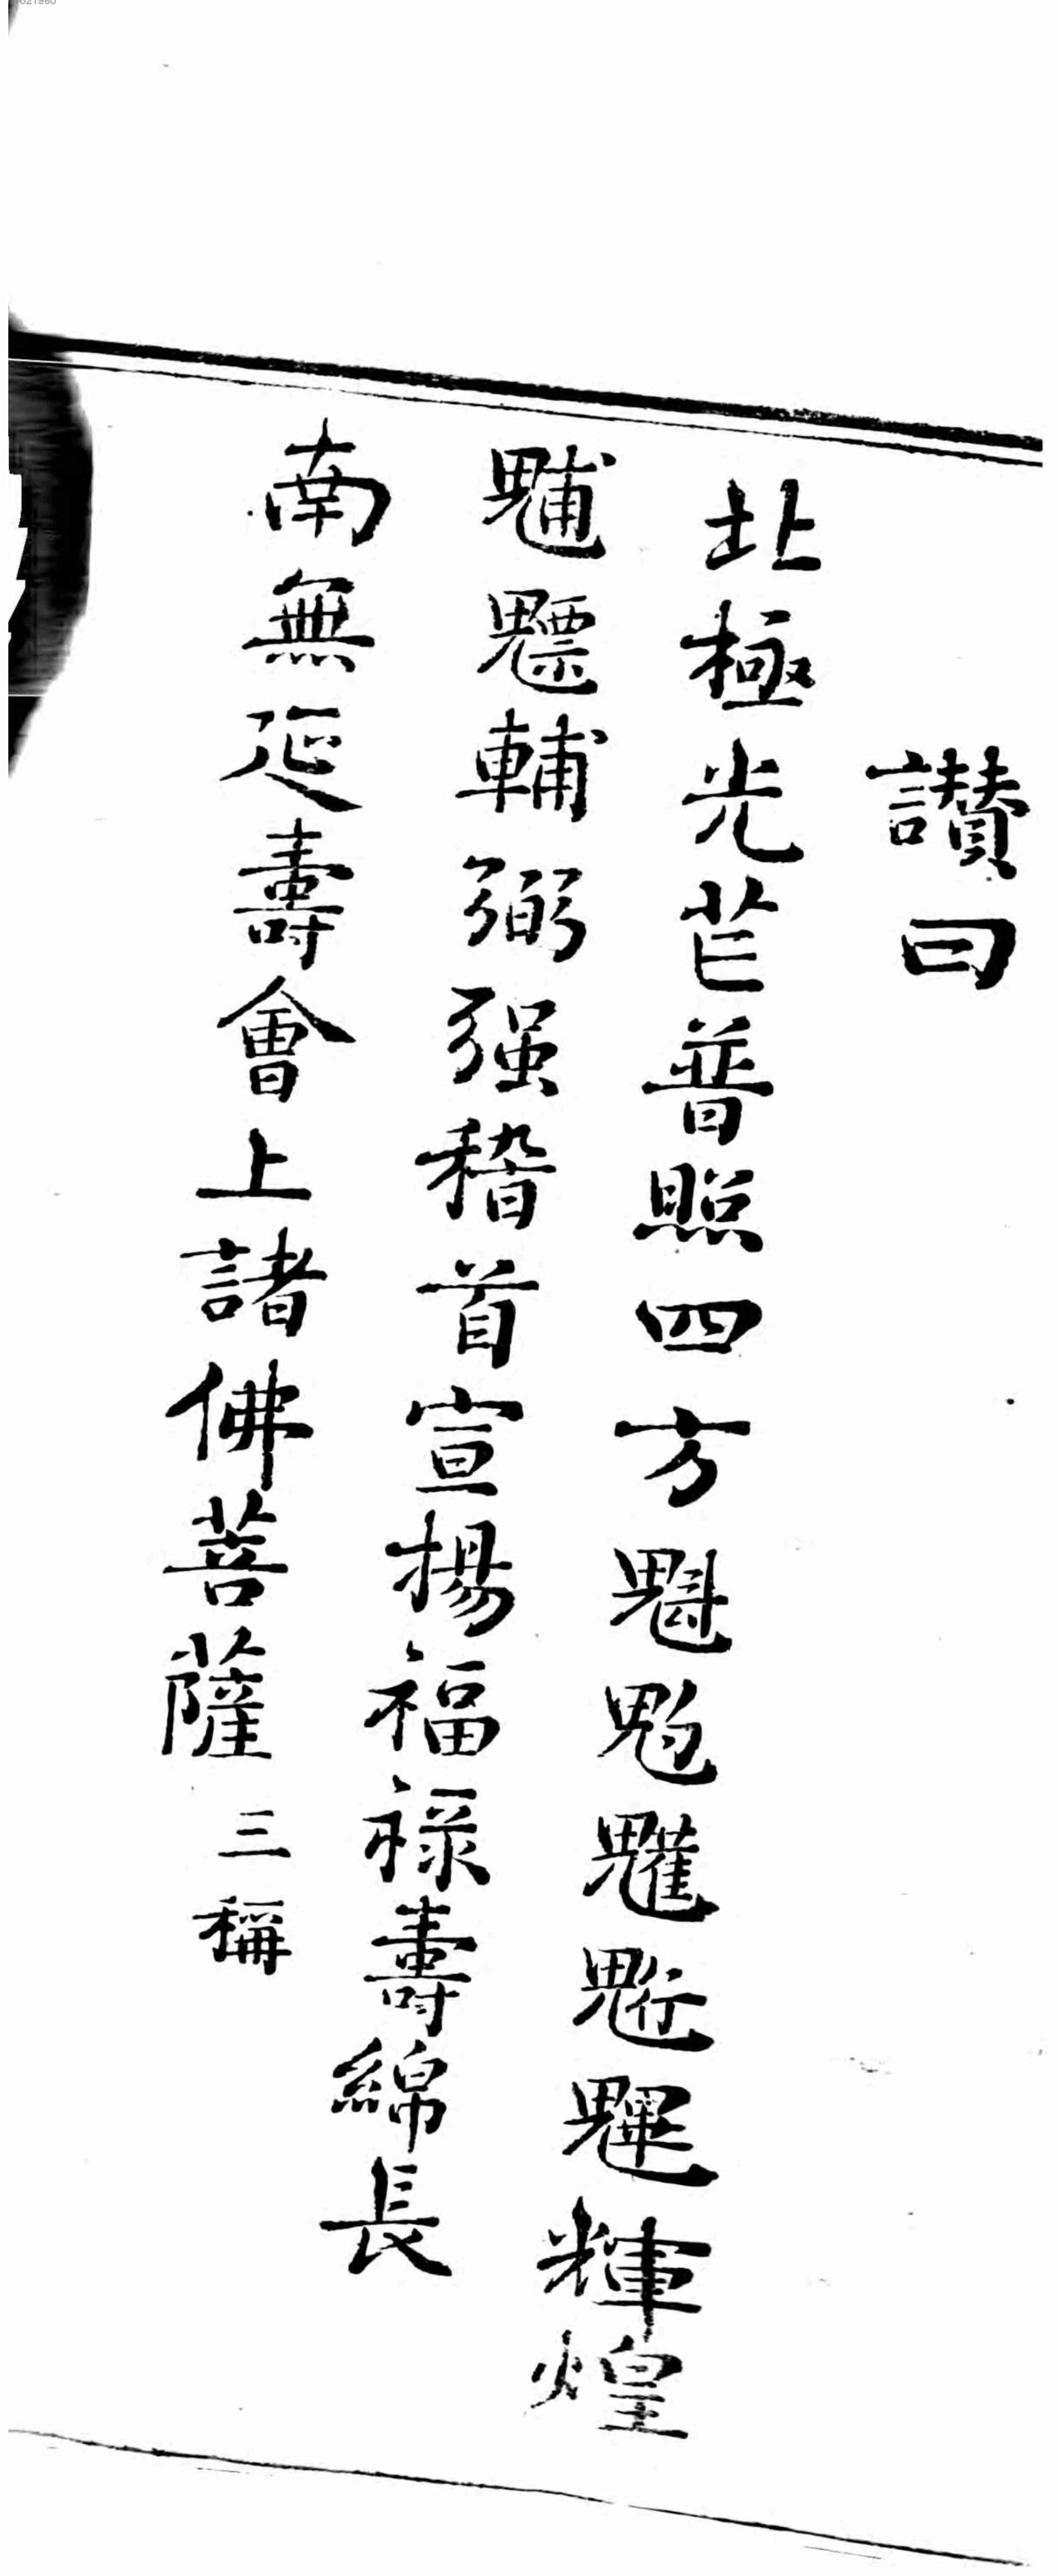 讃曰
北極光芒普照四方魁𩲃𩵄䰢魓輝煌
𩳐魒輔弼强稽首宣揚福禄壽綿長
南無延壽會上諸佛菩薩 三稱